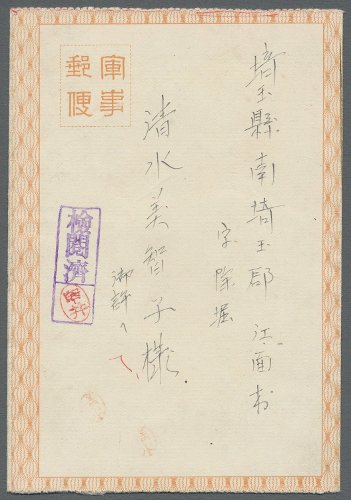 埼玉縣南埼玉郡江面村
字除堀
清水美智子様
御許へ
軍事
郵便
検閲濟